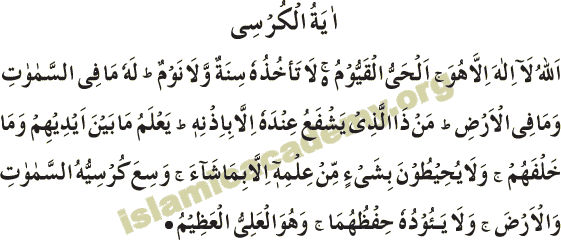 اٰيَةُ الْكُرْسِی
اَللهُ لَآ اِلٰهَ اِلَّا هُوَ ۚ اَلْحَیُّ الْقَيُّوْمُ ۚ۬ لَا تَأْخُذُهٗ سِنَةٌ وَّلَا نَوْمٌ ؕ لَهٗ مَا فِی السَّمٰوٰتِ
وَمَا فِی الْاَرْضِ ؕ مَنْ ذَا الَّذِیْ يَشْفَعُ عِنْدَهٗ اِلَّا بِاِذْنِهٖ ؕ يَعْلَمُ مَا بَيْنَ اَيْدِيْهِمْ وَمَا
خَلْفَهُمْ ۚ وَلَا يُحِيْطُوْنَ بِشَیْءٍ مِّنْ عِلْمِهٖٓ اِلَّا بِمَا شَآءَ ۚ وَسِعَ كُرْسِيُّهُ السَّمٰوٰتِ
وَالْاَرْضَ ۚ وَلَا يَئُوْدُهٗ حِفْظُهُمَا ۚ وَهُوَ الْعَلِیُّ الْعَظِيْمُ ●
islamicacademy.org